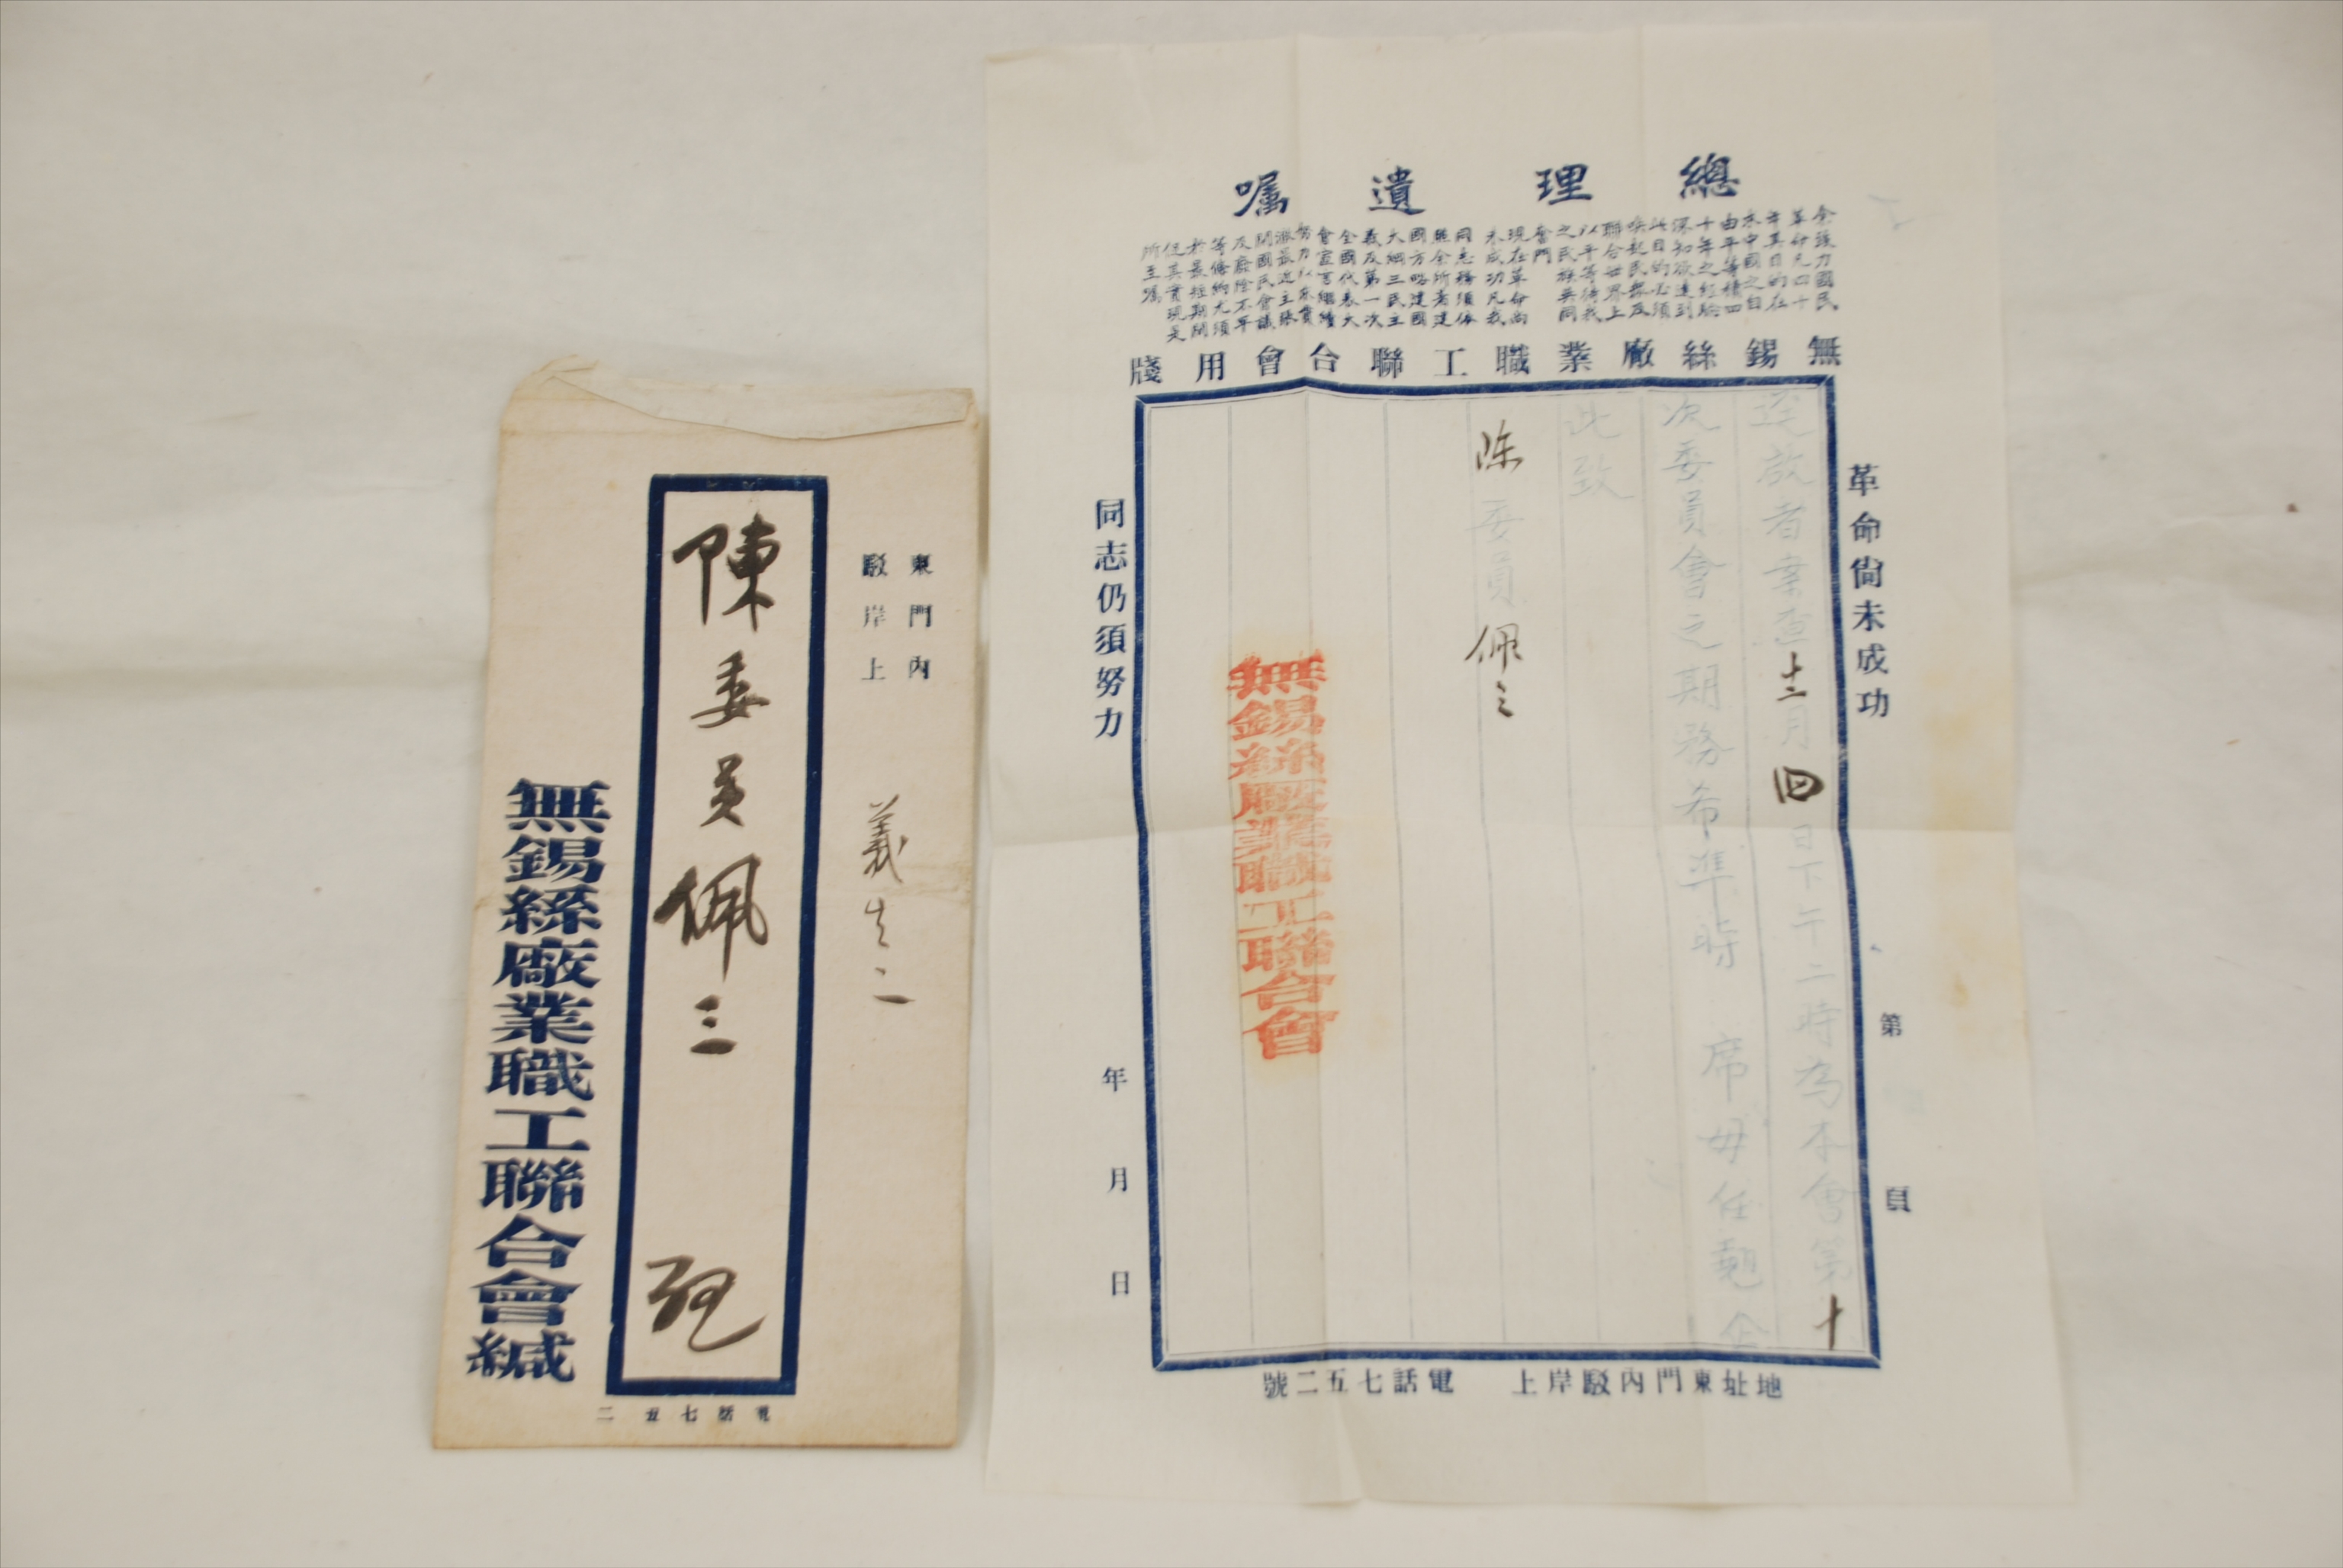 東門內
駁岸上
義生二
陳委員佩三
無錫絲廠業職工聯合會緘
電話七五二
總理遺囑
余致力國民
革命凡四十
年其目的在
求中國之自
由平等積四
十年之經驗
深知欲達到
此目的必須
喚起民眾及
聯合世界上
以平等待我
之民族共同
奮鬥
現在革命尚
未成功凡我
同志務須依
照余所著建
國方略建國
大綱三民主
義及第一次
全國代表大
會宣言繼續
努力以求貫
徹最近主張
開國民會議
及廢除不平
等條約尤須
於最短期間
促其實現是
所至囑
無錫絲廠業職工聯合會用牋
革命尚未成功
第 頁
逕啟者案查十二月四日下午二時為本會第十
次委員會之期務希準時 席毋任翹企
此致
陳委員佩三
無錫絲廠業職工聯合會
同志仍須努力
年 月 日
地址東門內駁岸上 電話七五二號